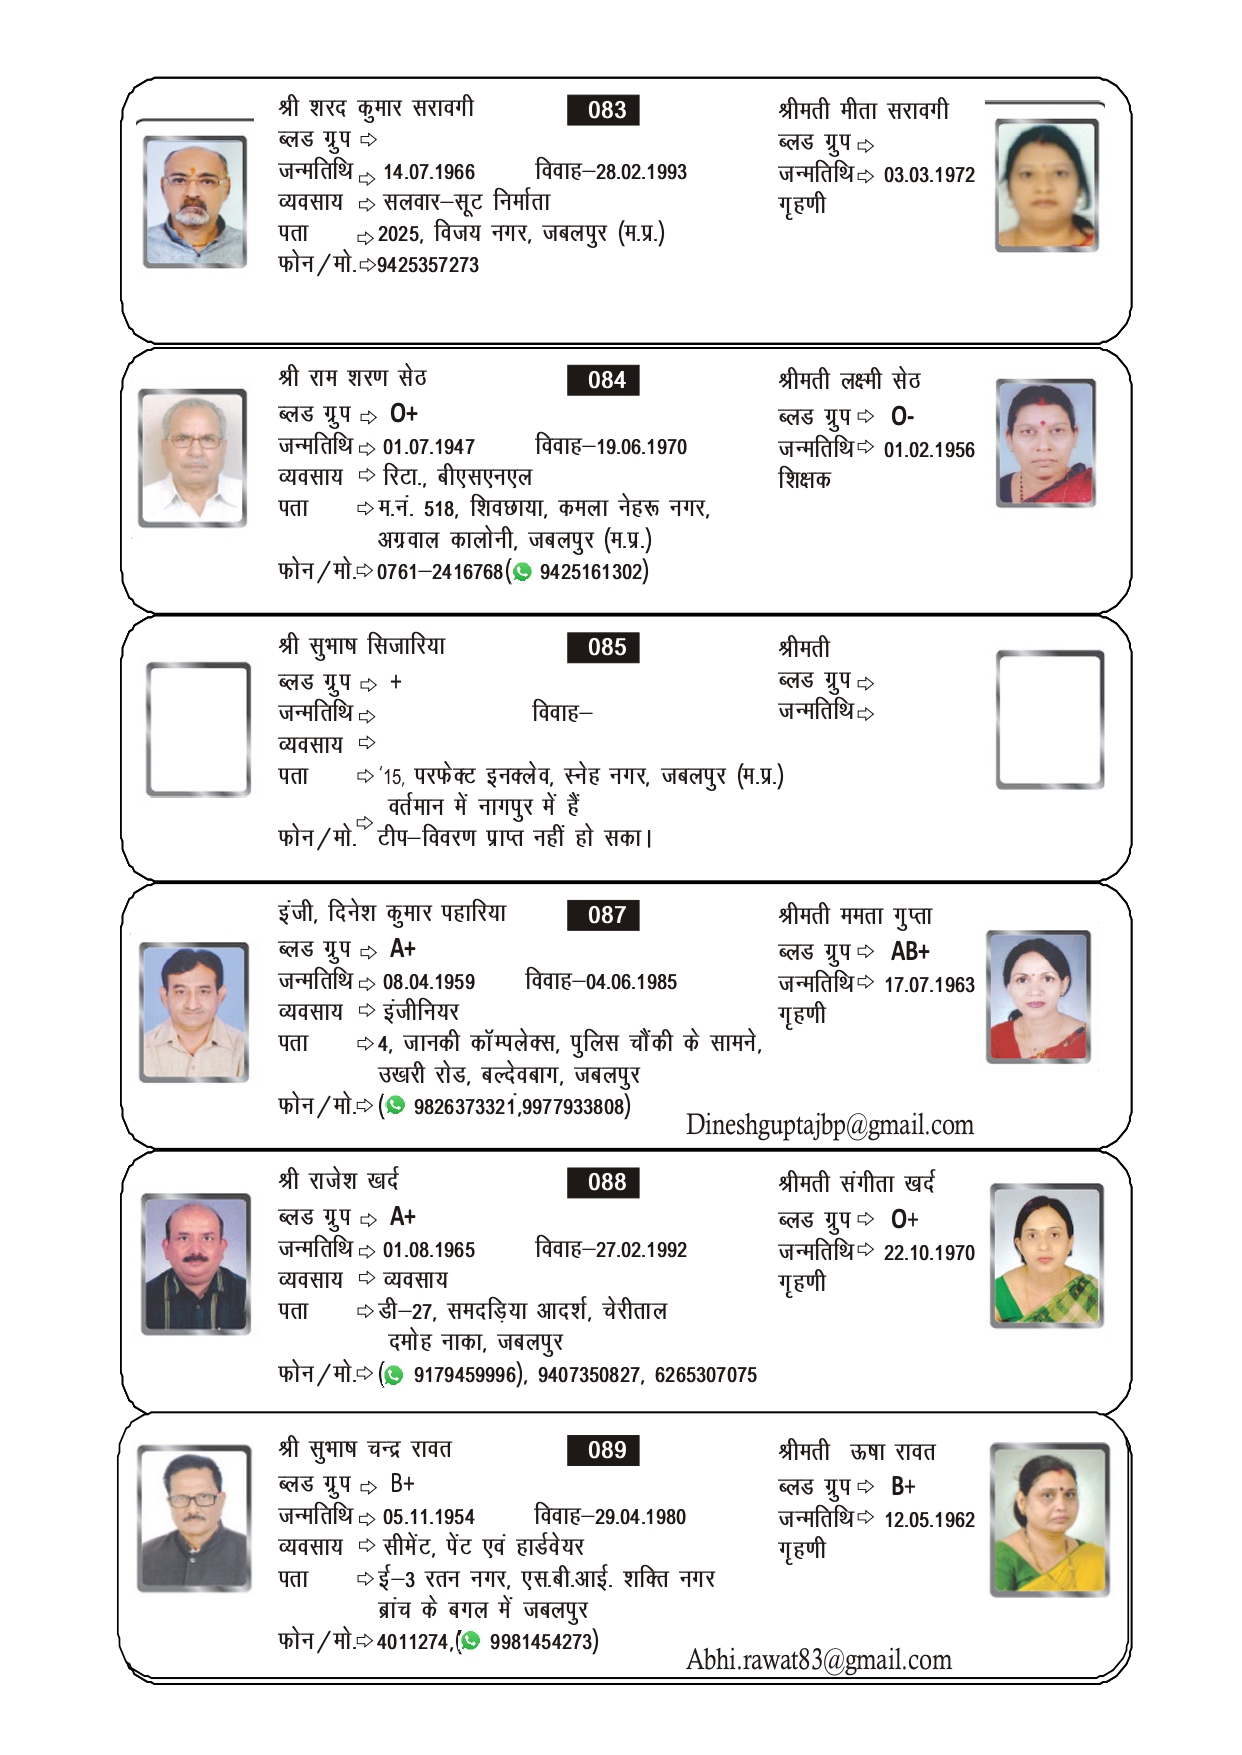 श्री शरद कुमार सरावगी 083 श्रीमती मीता सरावगी
ब्लड ग्रुप ⇨ ब्लड ग्रुप ⇨
जन्मतिथि ⇨ 14.07.1966 विवाह–28.02.1993 जन्मतिथि⇨ 03.03.1972
व्यवसाय ⇨ सलवार–सूट निर्माता गृहणी
पता ⇨ 2025, विजय नगर, जबलपुर (म.प्र.)
फोन/मो.⇨9425357273
श्री राम शरण सेठ 084 श्रीमती लक्ष्मी सेठ
ब्लड ग्रुप ⇨ O+ ब्लड ग्रुप ⇨ O-
जन्मतिथि ⇨ 01.07.1947 विवाह–19.06.1970 जन्मतिथि⇨ 01.02.1956
व्यवसाय ⇨ रिटा., बीएसएनएल शिक्षक
पता ⇨ म.नं. 518, शिवछाया, कमला नेहरू नगर,
अग्रवाल कालोनी, जबलपुर (म.प्र.)
फोन/मो.⇨ 0761–2416768( 9425161302)
श्री सुभाष सिजारिया 085 श्रीमती
ब्लड ग्रुप ⇨ + ब्लड ग्रुप ⇨
जन्मतिथि ⇨ विवाह– जन्मतिथि⇨
व्यवसाय ⇨
पता ⇨ '15, परफेक्ट इनक्लेव, स्नेह नगर, जबलपुर (म.प्र.)
वर्तमान में नागपुर में हैं
फोन/मो.⇨ टीप–विवरण प्राप्त नहीं हो सका।
इंजी, दिनेश कुमार पहारिया 087 श्रीमती ममता गुप्ता
ब्लड ग्रुप ⇨ A+ ब्लड ग्रुप ⇨ AB+
जन्मतिथि ⇨ 08.04.1959 विवाह–04.06.1985 जन्मतिथि⇨ 17.07.1963
व्यवसाय ⇨ इंजीनियर गृहणी
पता ⇨ 4, जानकी कॉम्पलेक्स, पुलिस चौंकी के सामने,
उखरी रोड, बल्देवबाग, जबलपुर
फोन/मो.⇨ ( 9826373321,9977933808)
Dineshguptajbp@gmail.com
श्री राजेश खर्द 088 श्रीमती संगीता खर्द
ब्लड ग्रुप ⇨ A+ ब्लड ग्रुप ⇨ O+
जन्मतिथि ⇨ 01.08.1965 विवाह–27.02.1992 जन्मतिथि⇨ 22.10.1970
व्यवसाय ⇨ व्यवसाय गृहणी
पता ⇨ डी–27, समदड़िया आदर्श, चेरीताल
दमोह नाका, जबलपुर
फोन/मो.⇨ ( 9179459996), 9407350827, 6265307075
श्री सुभाष चन्द्र रावत 089 श्रीमती ऊषा रावत
ब्लड ग्रुप ⇨ B+ ब्लड ग्रुप ⇨ B+
जन्मतिथि ⇨ 05.11.1954 विवाह–29.04.1980 जन्मतिथि⇨ 12.05.1962
व्यवसाय ⇨ सीमेंट, पेंट एवं हार्डवेयर गृहणी
पता ⇨ ई–3 रतन नगर, एस.बी.आई. शक्ति नगर
ब्रांच के बगल में जबलपुर
फोन/मो.⇨ 4011274,( 9981454273)
Abhi.rawat83@gmail.com